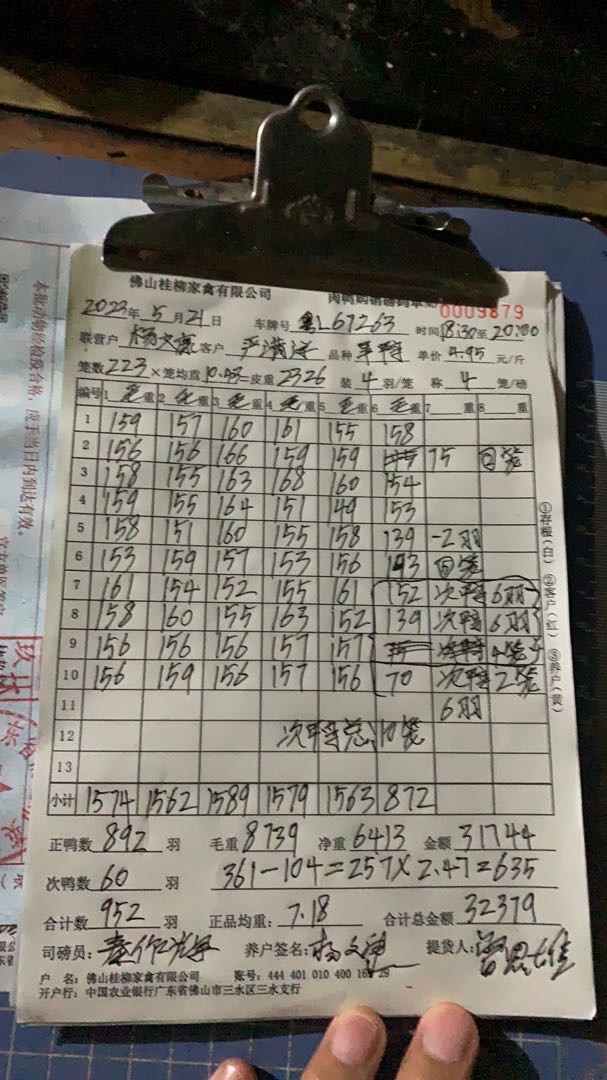 佛山桂柳家禽有限公司
0009879
2023年5月21日 车牌号 粤L67263 时间18:30至20:00
联营户 客户 品种 单价4.95元/斤
笼数223×笼均重10.43=皮重2326 装4羽/笼 称4笼/磅
编号 1毛重 2毛重 3毛重 4毛重 5毛重 6毛重 7 重 8 重
1 159 157 160 161 155 158
2 156 156 166 159 159 75 回笼
3 158 155 163 168 160 154
4 159 155 164 151 149 153
5 158 151 160 155 158 139 -2羽
6 153 159 157 153 156 143 回笼
7 161 154 152 155 161 152 次甲特 6羽
8 158 160 155 163 152 139 次甲特 6羽
9 156 156 156 157 157
10 156 159 156 157 156 70 次甲特 2笼
11 6羽
12 10笼
13
小计 1574 1562 1589 1579 1563 872
①存根(白) ②客户(红) ③养户(黄)
正鸭数892羽 毛重8739 净重6413 金额31744
次鸭数60羽 361-104=257×2.47=635
合计数952羽 正品均重:7.18 合计总金额32379
司磅员: 养户签名: 提货人:
户 名:佛山桂柳家禽有限公司 账号:444 401 010 400 16
开户行:中国农业银行广东省佛山市三水区三水支行
本批动物检疫合格,应于当日内到达有效。